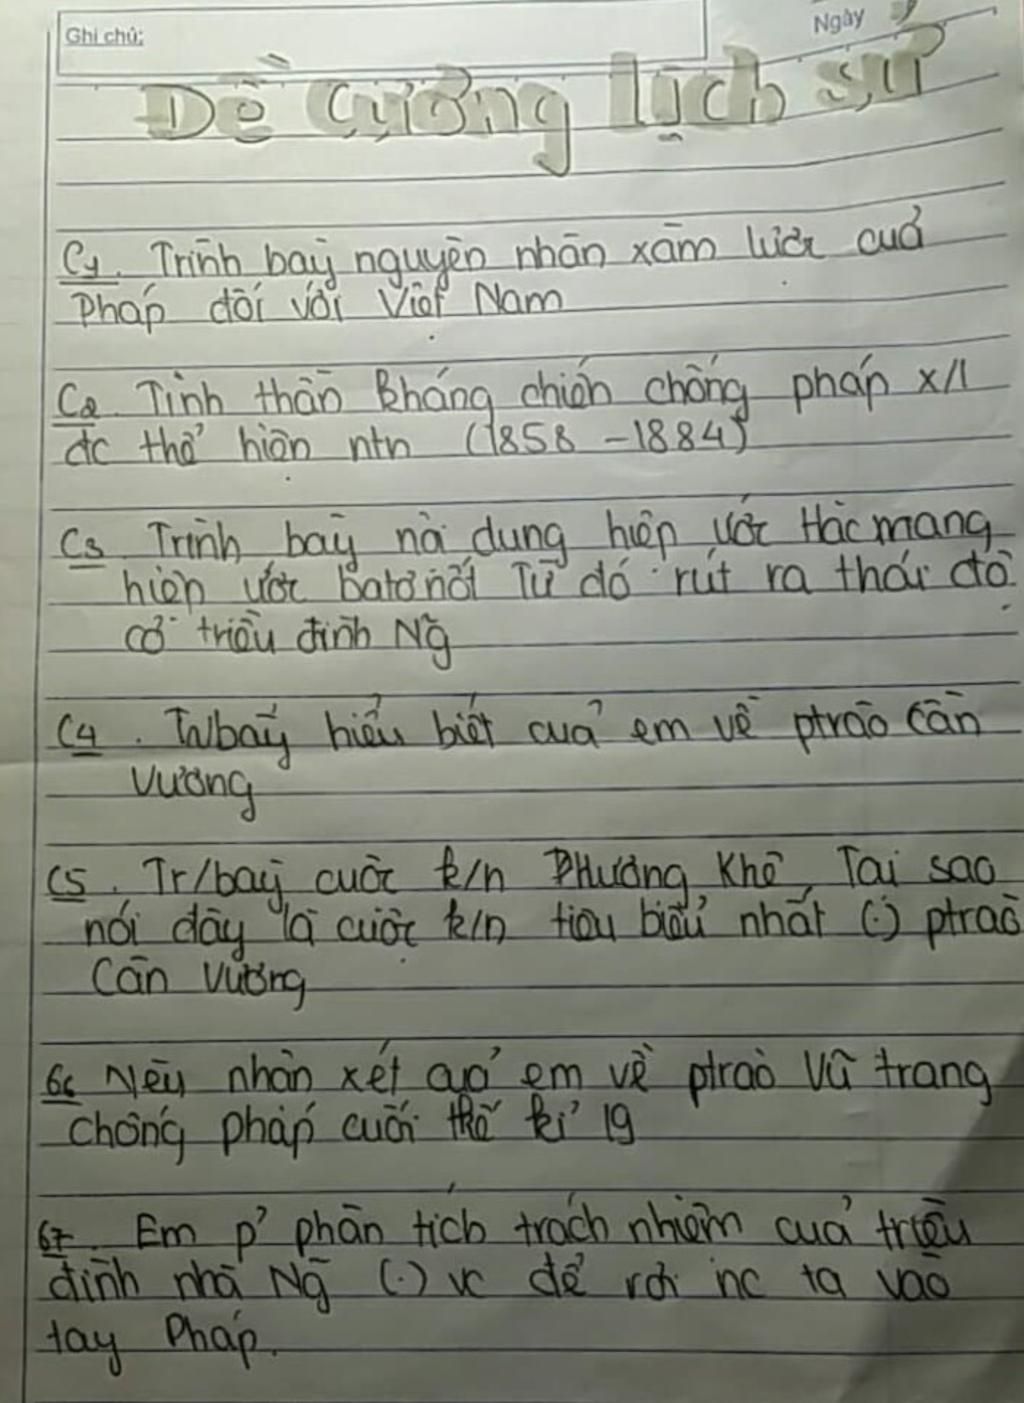 Ghi chú:
Ngày
Đề cương lịch sử
C1. Trình bày nguyên nhân xâm lược của
Pháp đối với Việt Nam
C2. Tinh thần kháng chiến chống pháp x/l
đc thể hiện ntn (1858 - 1884)
C3. Trình bày nội dung hiệp ước Hác măng
hiệp ước patơnốt Từ đó rút ra thái độ
củ triều đình Ng~
C4. Tr/bày hiểu biết của em về ptrào Cần
Vương
C5. Tr/bày cuộc k/n Hương Khê, Tại sao
nói đây là cuộc k/n tiêu biểu nhất (.) ptrào
Cần Vương
C6 Nêu nhận xét của em về ptrào Vũ trang
chống pháp cuối thế kỉ 19
C7. Em p' phân tích trách nhiệm của triều
đình nhà Ng~ (.) vc để rơi nc ta vào
tay Pháp.